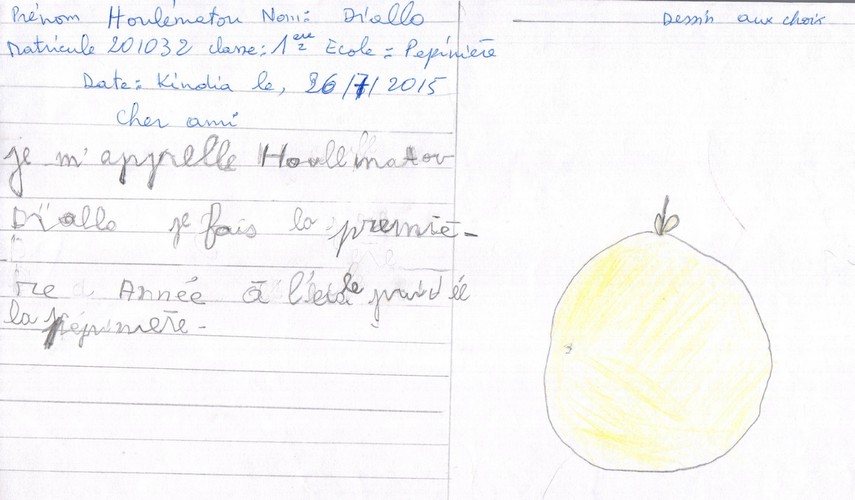 Prénom Houlématou Nom: Diallo
Matricule 201032 classe: 1ere 2 Ecole = Pepinière
Date: Kindia le, 26/7/2015
Cher ami
je m'appelle Houlématou
Diallo je fais la premiè-
re Année à l'école privée
la pépinière.
Dessin aux choix